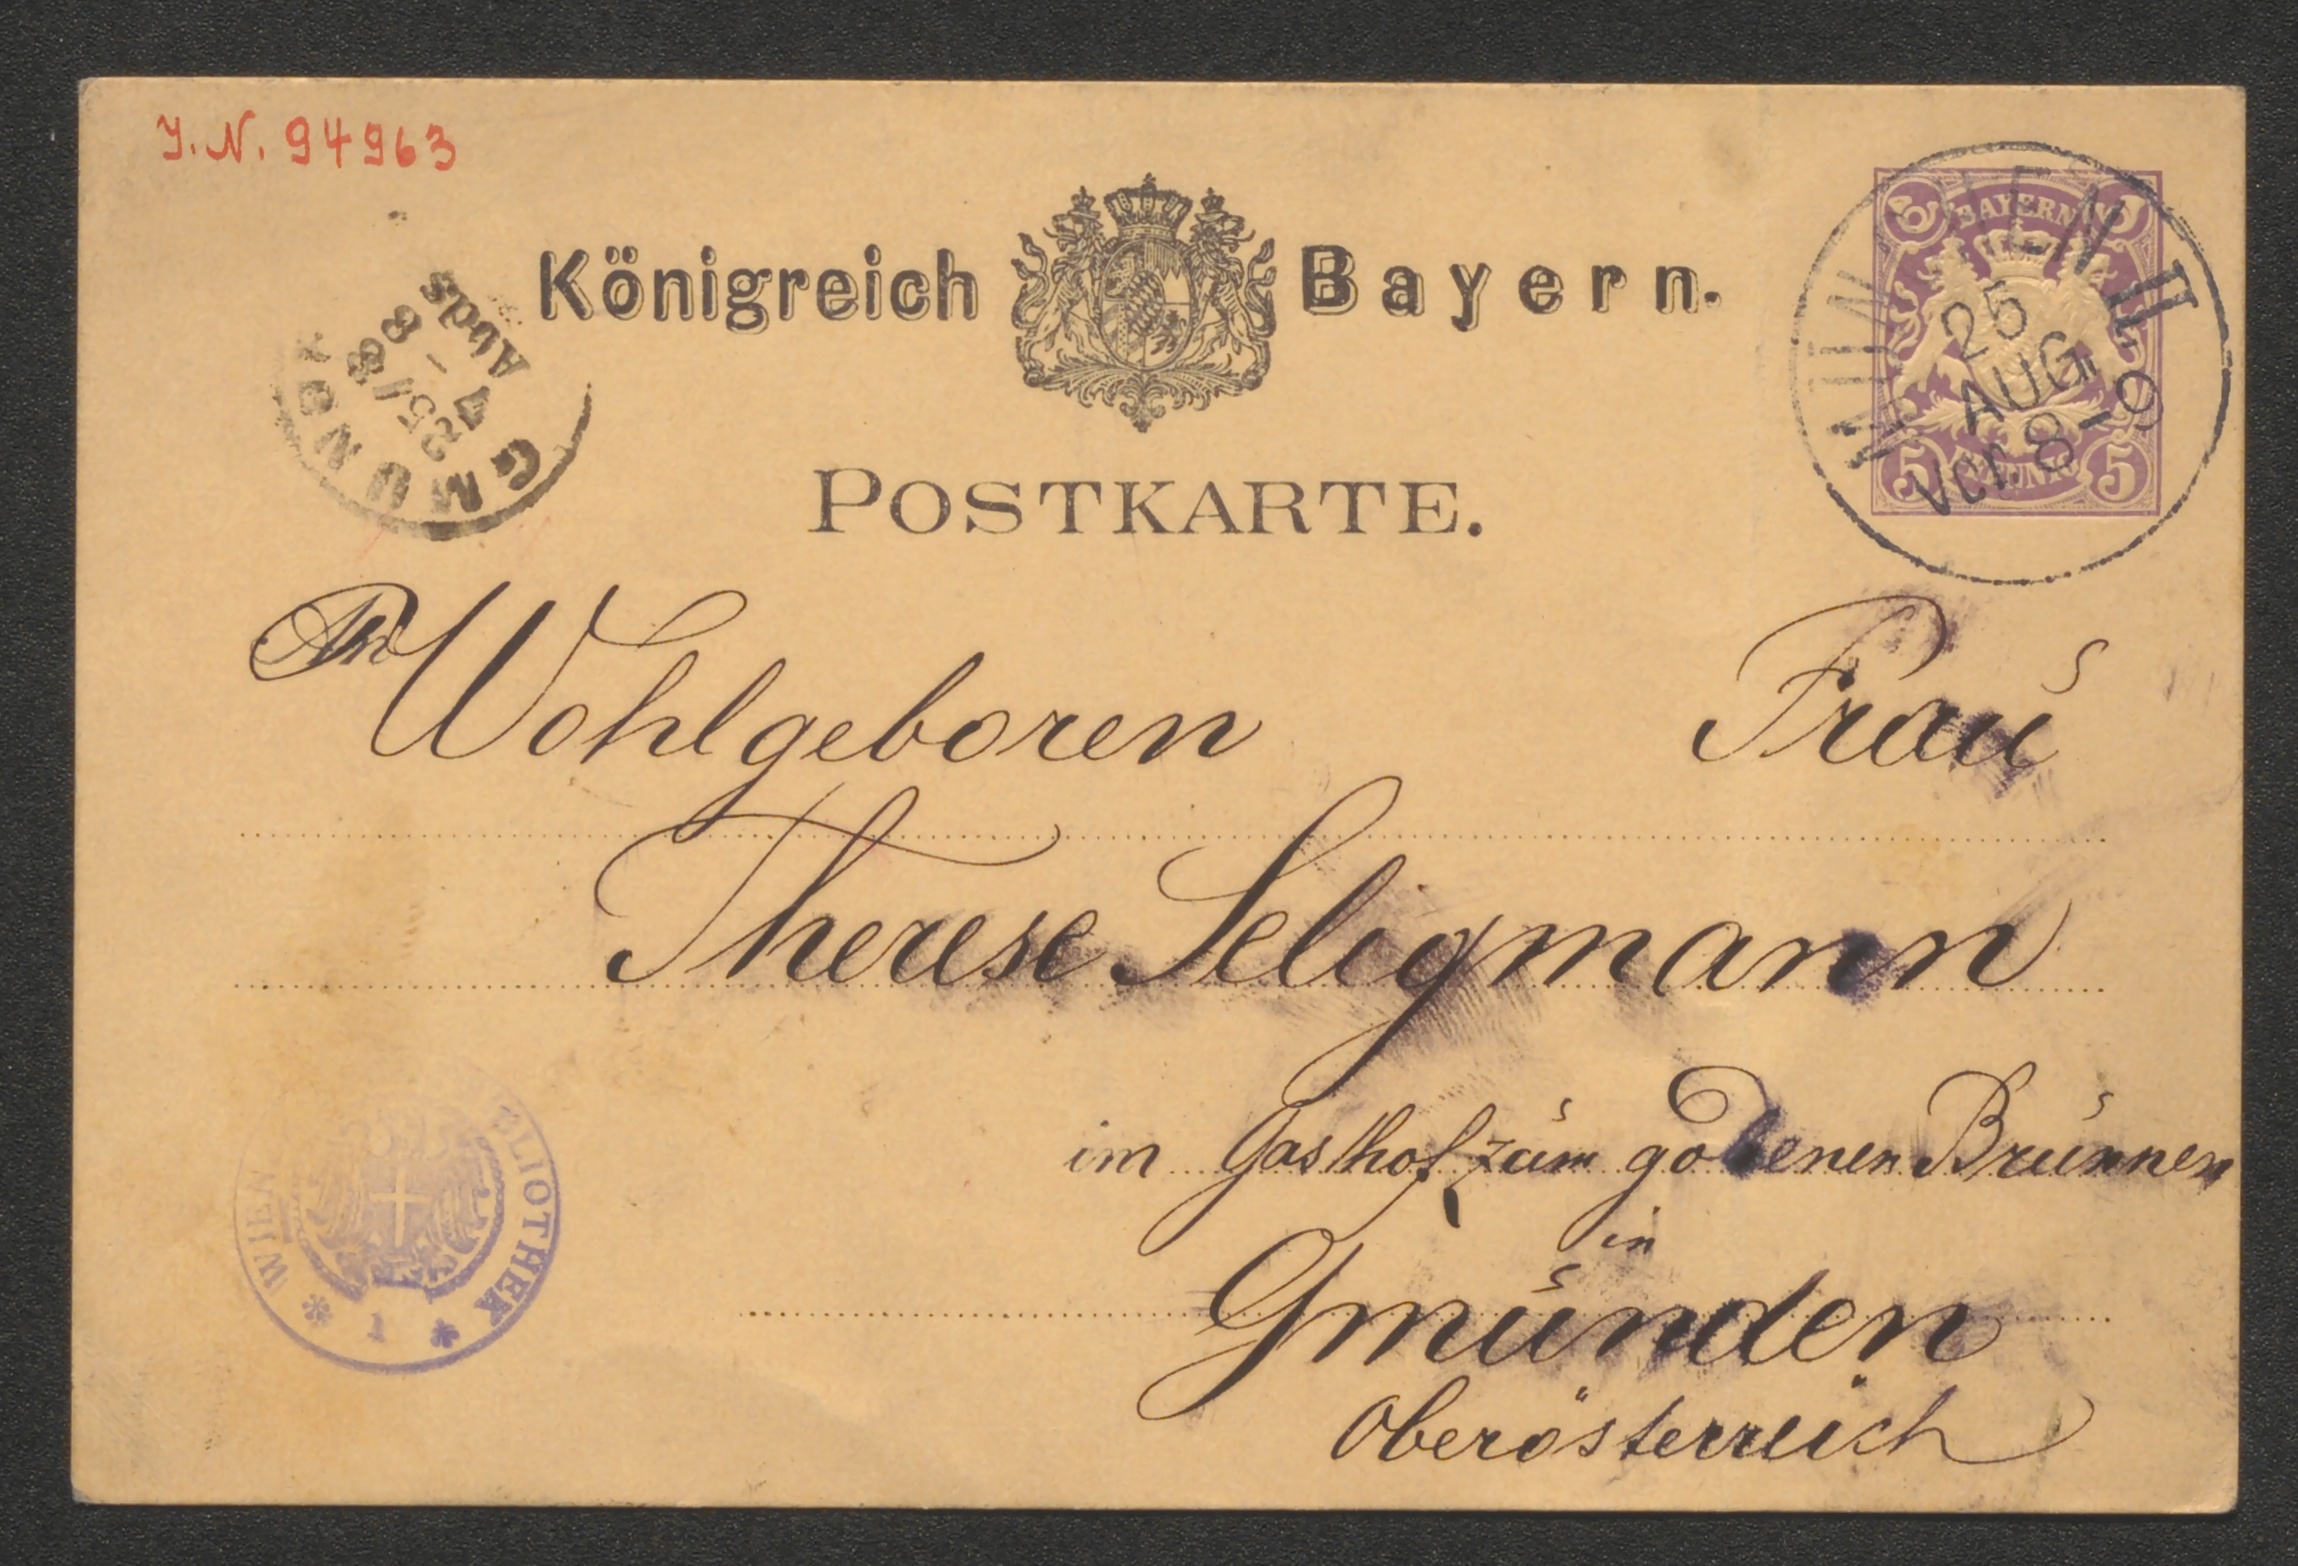 J. N. 94963
Königreich Bayern.
POSTKARTE.
BAYERN
5 5
MÜNCHEN II
25
AUG
Vor. 8-9
GMUNDEN
25/8
4-8
Abds
An Wohlgeboren Frau
Therese Seligmann
im Gasthof zum goldenen Brunnen
in
Gmunden
Oberösterreich
WIEN BLIOTHEK